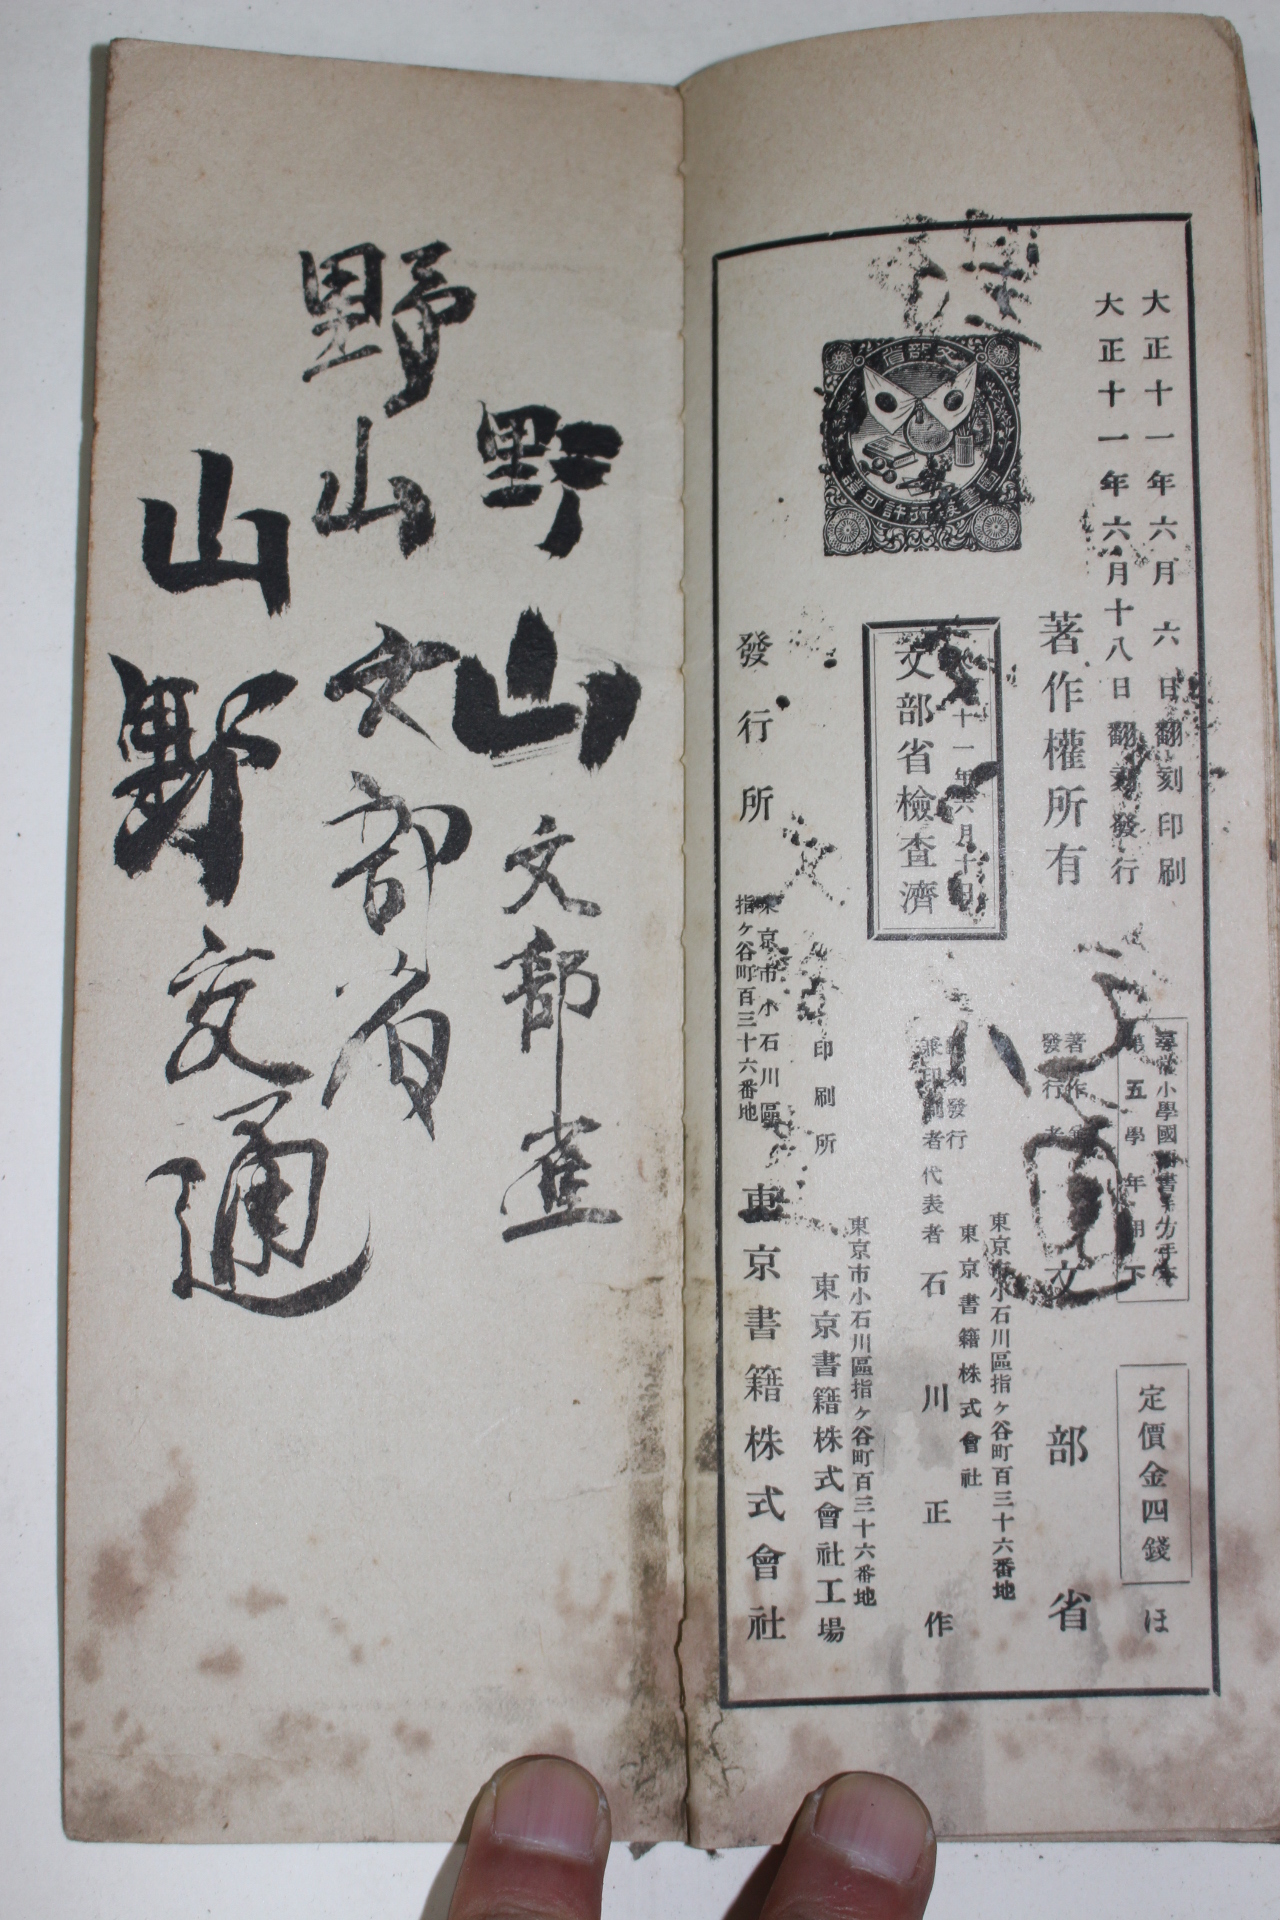 大正十一年六月六日翻刻印刷
大正十一年六月十八日翻刻發行
著作權所有
文部省
圖書發行許可證
十一年六月十日
文部省檢査濟
尋常小學國語書キ方手本
第五學年用下
定價金四錢
ほ
著作兼
發行者
文部省
東京市小石川區指ヶ谷町百三十六番地
東京書籍株式會社
翻刻發行
兼印刷者
代表者 石川正作
東京市小石川區指ヶ谷町百三十六番地
印刷所
東京書籍株式會社工場
東京市小石川區
指ヶ谷町百三十六番地
發行所
東京書籍株式會社
野山文部
野山文部省
山野交通